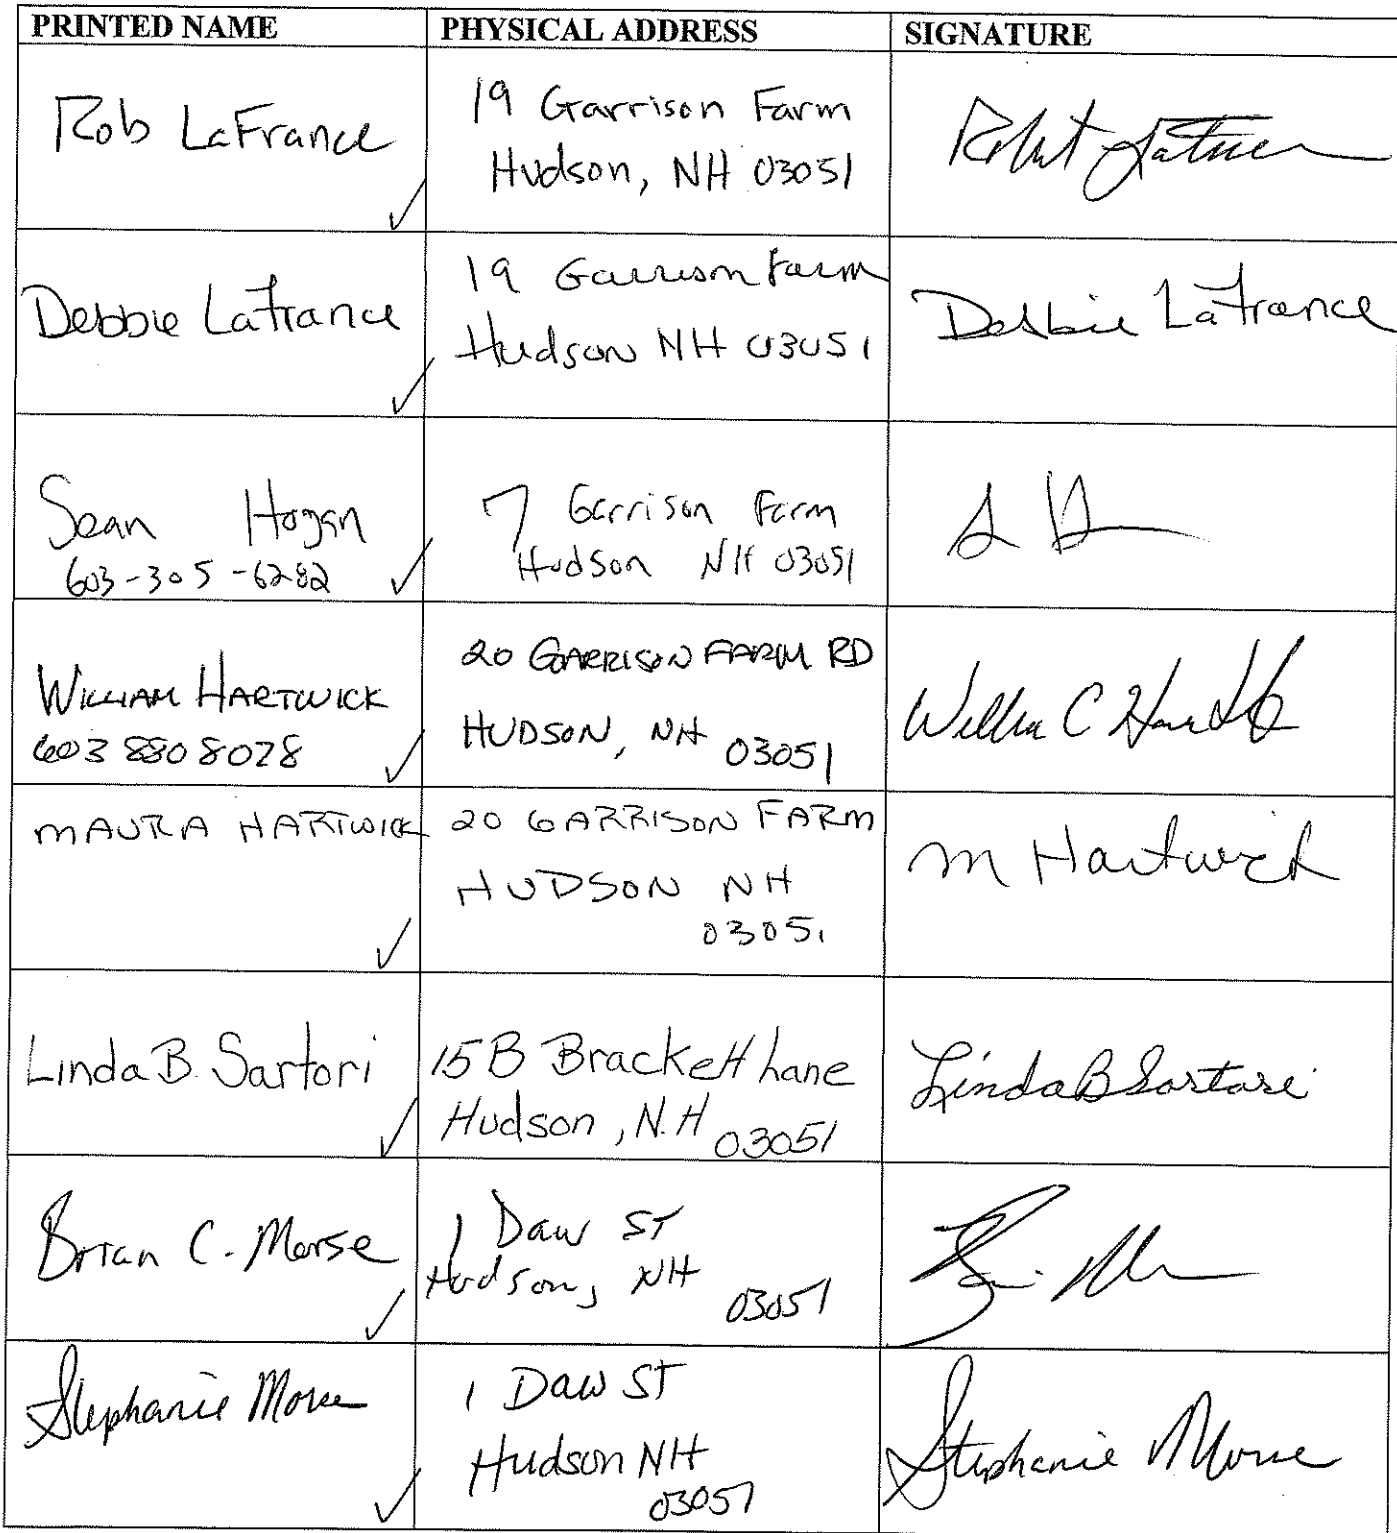 PRINTED NAME PHYSICAL ADDRESS SIGNATURE
Rob LaFrance
19 Garrison Farm
Hudson, NH 03051
Robert
Debbie LaFrance
19 Garrison Farm
Hudson NH 03051
Debbie LaFrance
Sean Hogan
603-305-6282
7 Garrison Farm
Hudson NH 03051
S H
WILLIAM HARTWICK
603 880 8028
20 GARRISON FARM RD
HUDSON, NH 03051
C
MAURA HARTWICK
20 GARRISON FARM
HUDSON NH
03051
M Hartwick
Linda B. Sartori
15B Brackett Lane
Hudson, N.H 03051
Linda B Sartori
Brian C. Morse
1 Daw ST
Hudson, NH 03051
Stephanie Morse
1 Daw ST
Hudson NH
03051
Stephanie Morse